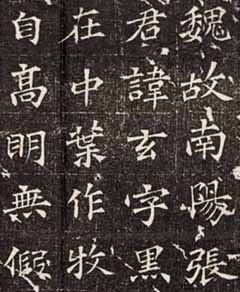 魏故南陽張
君諱玄字黑
在中葉作牧
自高明無假